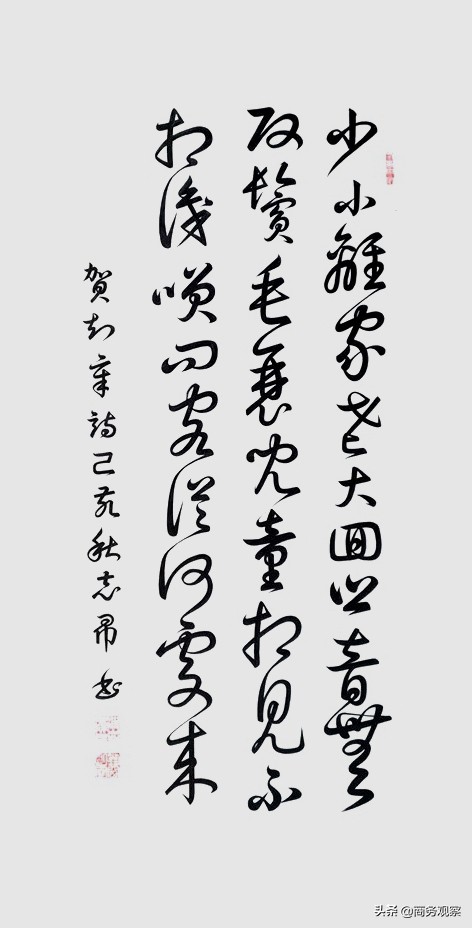 少小離家老大囬鄉音無
改鬢毛衰兒童相見不
相識咲問客從何處来
賀知章詩己亥秋志昂書
头条 @商务观察